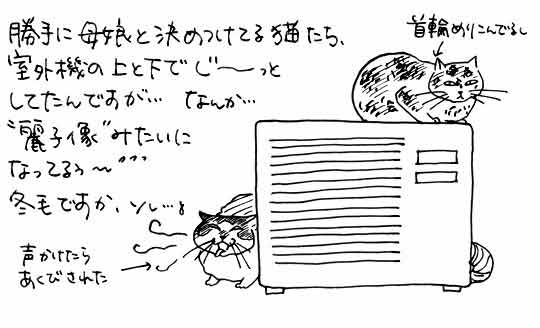 勝手に母娘と決めつけてる猫たち、
室外機の上と下でじ〜〜っと
してたんですが… なんか…
"麗子像"みたいに
なってるぅ〜"""
冬毛ですか、
首輪めりこんでるし
声かけたら
あくびされた